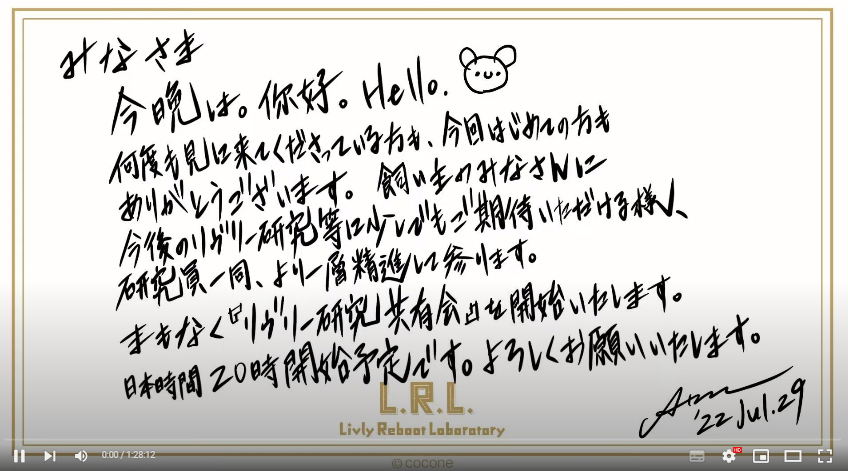 みなさま
今晩は。你好。Hello.
何度も見に来てくださっている方も、今回はじめての方も
ありがとうございます。 飼い主のみなさんに
今後のリヴリー研究等に少しでもご期待いただける様、
研究員一同、より一層精進して参ります。
まもなく『リヴリー研究共有会』を開始いたします。
日本時間 20時開始予定です。よろしくお願いいたします。
'22 Jul.29
L.R.L.
Livly Reboot Laboratory
© cocone
0:00 / 1:28:12
HD